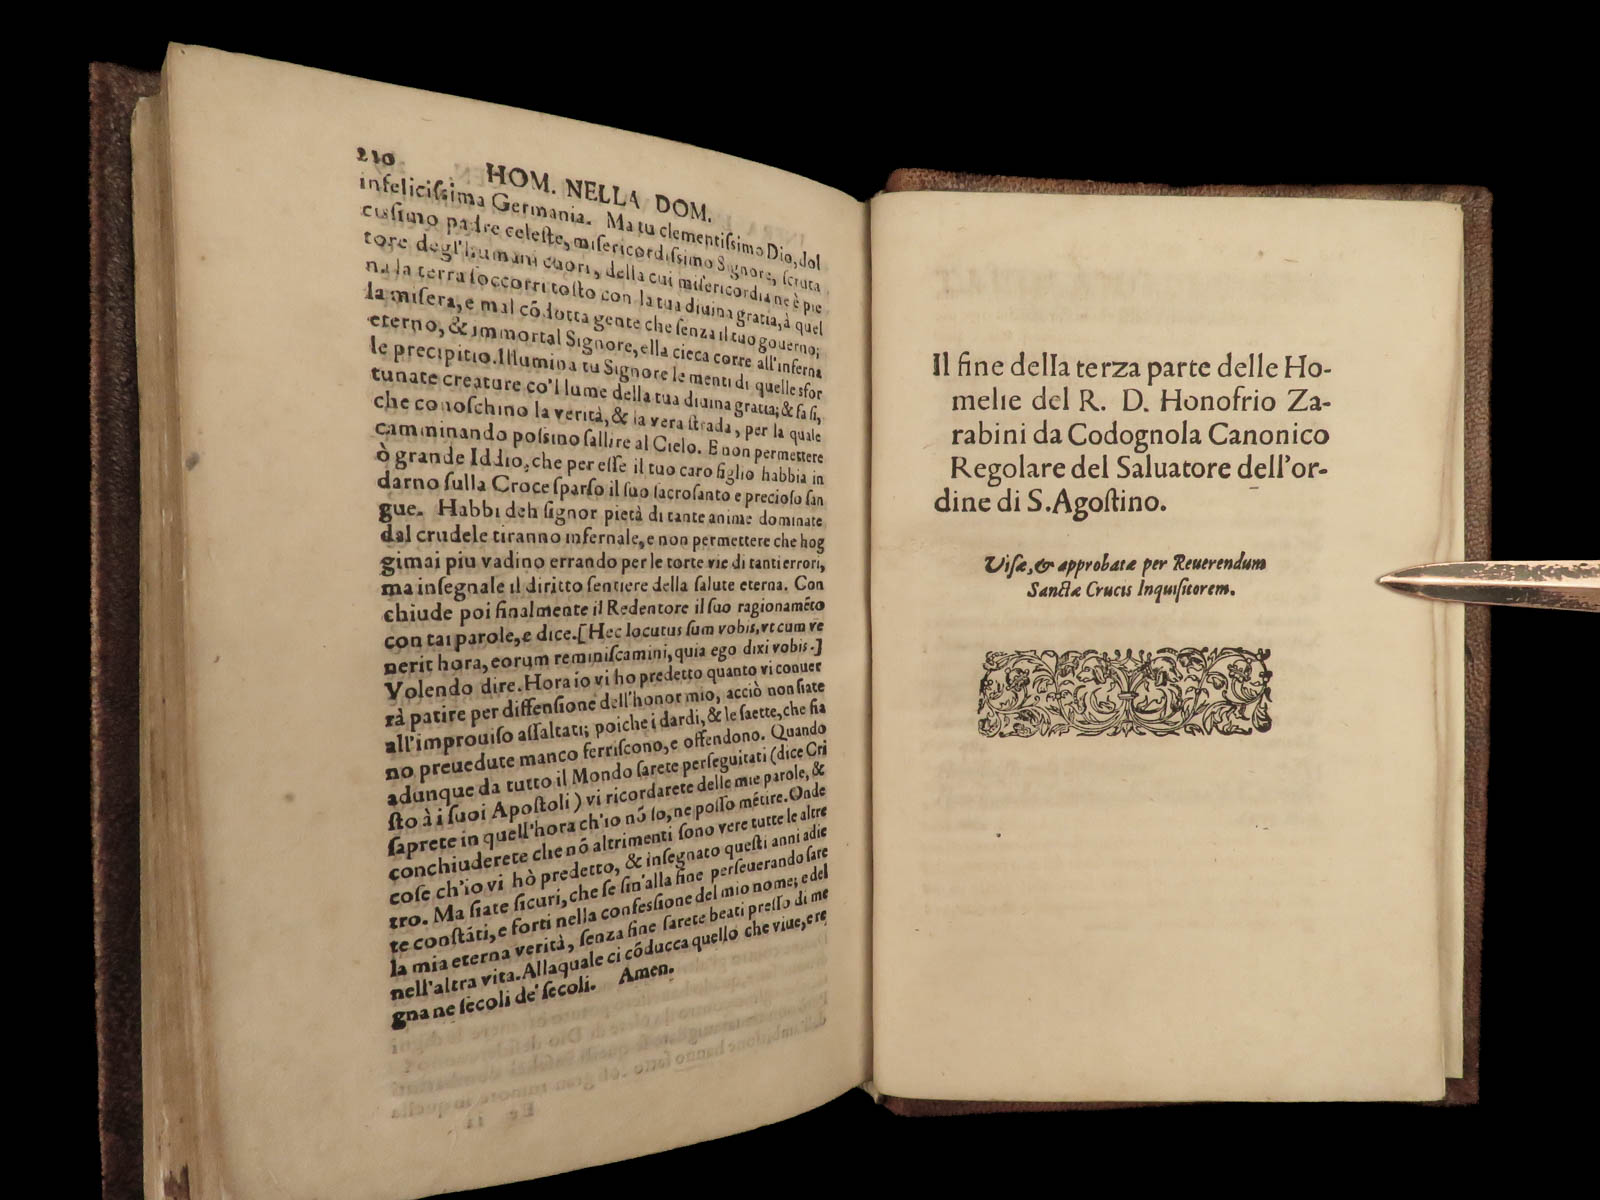 210
HOM. NELLA DOM.
infelicissima Germania. Ma tu clementissimo Dio, dol
cissimo padre celeste, misericordissimo Signore, scruta
tore degl'humani cuori, della cui misericordia ne è pie
na la terra soccorri tosto con la tua diuina gratia, à quel
la misera, e mal cõdotta gente che senza il tuo gouerno,
eterno, & immortal Signore, ella cieca corre all'inferna
le precipitio. Illumina tu Signore le menti di quelle sfor
tunate creature co'l lume della tua diuina gratia; & fa sì,
che conoschino la verità, & la vera strada, per la quale
camminando possino sallire al Cielo. E non permettere
ò grande Iddio, che per esse il tuo caro figlio habbia in
darno sulla Croce sparso il suo sacrosanto e precioso san
gue. Habbi deh signor pietà di tante anime dominate
dal crudele tiranno infernale, e non permettere che hog
gimai piu vadino errando per le torte vie di tanti errori,
ma insegnale il diritto sentiere della salute eterna. Con
chiude poi finalmente il Redentore il suo ragionamẽto
con tai parole, e dice. [Hec locutus sum vobis, vt cum ve
nerit hora, eorum reminiscamini, quia ego dixi vobis.]
Volendo dire. Hora io vi ho predetto quanto vi conuer
rà patire per diffensione dell'honor mio, acciò non siate
all'improuiso assaltati; poiche i dardi, & le saette, che sia
no preuedute manco ferriscono, e offendono. Quando
adunque da tutto il Mondo sarete perseguitati (dice Cri
sto à i suoi Apostoli) vi ricordarete delle mie parole, &
saprete in quell'hora ch'io nõ so, ne posso mẽtire. Onde
conchiuderete che nõ altrimenti sono vere tutte le altre
cose ch'io vi hò predetto, & insegnato questi anni adie
tro. Ma siate sicuri, che se sin'alla fine perseuerando sare
te constãti, e forti nella confessione del mio nome; e del
la mia eterna verità, senza fine sarete beati presso di me
nell'altra vita. Alla quale ci cõducca quello che viue, e re
gna ne secoli de' secoli. Amen.
Il fine della terza parte delle Ho-
melie del R. D. Honofrio Za-
rabini da Codognola Canonico
Regolare del Saluatore dell'or-
dine di S. Agostino.
Visæ, & approbatæ per Reuerendum
Sanctæ Crucis Inquisitorem.